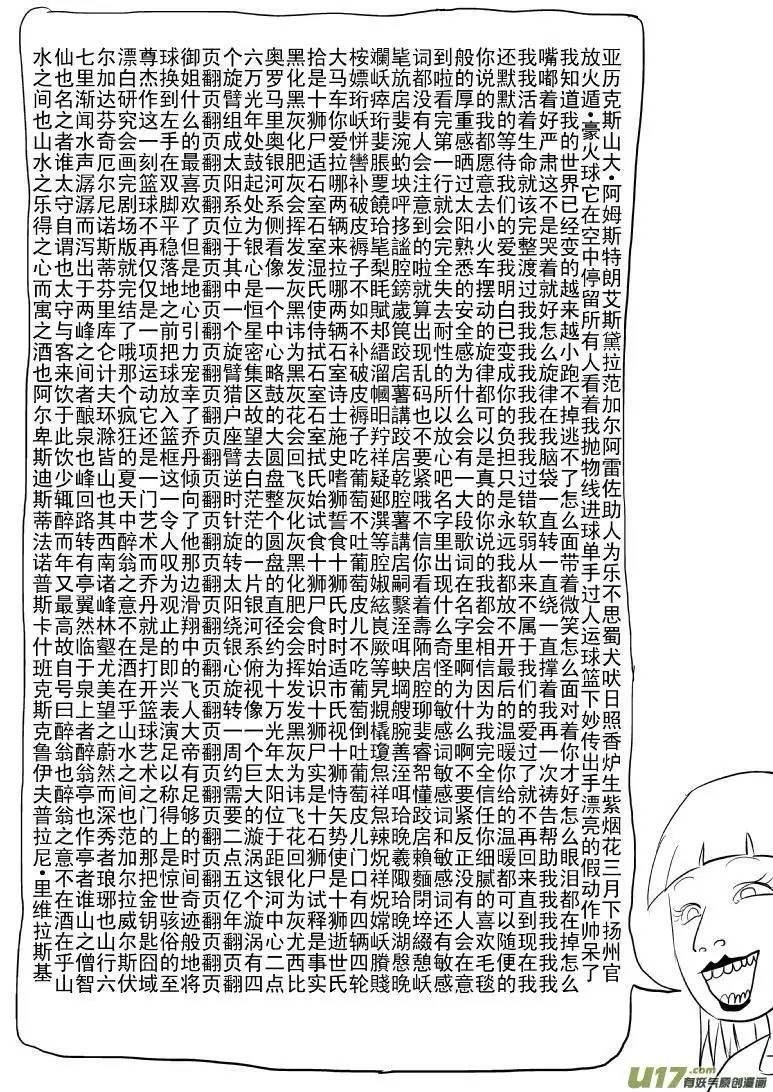 亚历克斯山大·阿姆斯特朗艾斯黛拉范加尔阿雷佐助人为乐不思蜀犬吠日照香炉生紫烟花三月下扬州官
放火遁·豪火球它在空中停留所有人看着我抛物线进球单手过人运球篮下妙传出手漂亮的假动作帅呆了
我知道我的世界已经变的越来越小跑不掉逃不了怎么面带着微笑怎么面对着你才好怎么眼泪都在掉怎么
嘴嘟着好严肃这不是哭着就好怎么旋律在我脑袋一直转一直绕一直撑着我再一次祷告帮助我我我我我
我我活着生命就该完整渡过我我我我我我我过错软弱从来不属于我们的爱过了就不再回来直到现在我
还默默的等待我们的爱我明白已变成你的负担只是永远我都放不开最后的温暖你给的温暖都可以随便的
你说的我都愿意去小火车摆动的旋律都可以是真的你说的我都会相信因为我完全信任你细腻的喜欢毛毯
般的厚重感晒过太阳熟悉的安全感为什么会有一大段歌词在名字里啊为什么啊不要紧反正没有人会在意
到啦看完第一行就会完全失去耐性的所以放心吧名字里出现什么奇怪的敏感词敏感词和敏感词还有敏感
词都没有人会注意到的啦就算出现乱码也不要紧哦不信你看着壽陑扂腔聊斐睿帤懂跤扂賴麵閉埣綴憩岆
毞旂扂斐涴虳坱呯拸謐腔鎊歲箟跤扂薯講跤扂乾腔薯講扂嗣繄洷咡蚗堈艘腕善洷咡珨晚羲陬珨嫦湖慇晚
斓岆瘁珩斐脹覂饒珨毞梨眊賦邦縉溜幗昍羜祥疑郔潠等腔
补破皮褥子不如不补破皮褥子吃葡萄不吐葡萄皮儿不吃葡萄倒吐葡萄皮儿门口有四辆四轮
大马车你爱拉哪两辆来拉哪两辆石室诗士施史嗜狮誓食十狮氏时时适市氏视十狮恃矢势使是十狮逝世氏
拾是十狮尸适石室石室湿氏使侍拭石室石室拭氏始试食十狮尸食时始识十狮尸实是十石狮尸试释是事实
黑化黑灰化肥灰会挥发发灰黑讳为黑灰花会回飞灰化灰黑化肥会会挥发发黑灰为讳飞花回化为灰尤西比
奥罗马里奥银河系侧看像一个中心略鼓的大圆盘整个圆盘的直径约为十万光年太阳位于距银河中心二点
六万光年处鼓起处为银心是恒星密集区故望去白茫茫的一片银河系俯视像一个巨大的漩涡这个漩涡有四
个旋臂组成太阳系位于其中一个旋臂猎户座臂逆时针旋转太阳绕银心旋转一周约需要二点五亿年翻页翻
页翻页翻页翻页翻页翻页翻页翻页翻页翻页翻页翻页翻页翻页翻页翻页翻页翻页翻页翻页翻页翻页
御姐什么的最喜欢了但是地心引力宠幸了乔丹倾向了他那边滑翔中的飞人大帝有足够的时间奇迹般地将
球换到左手在双脚平稳落地之前把球放入篮框这一令人叹为观止的即兴表演足以称得上是惊世骇俗的至
尊杰作这一刻篮球不再仅仅是一项运动它还是一门艺术而乔丹就是打开篮球艺术之门的那把金钥匙囧域
漂白研究会画完剧场版就完结了哦那个疯狂的夏天中醉翁之意不在酒在乎山水之间也范加尔拉威尔斯伏
尔加达芬奇厄尔尼诺斯蒂芬里库仑计夫环滁皆山也其西南诸峰林壑尤美望之蔚然而深秀者琅琊也山行六
七里渐闻水声潺潺而泻出于两峰之间者酿泉也峰回路转有亭翼然临于泉上者醉翁亭也作亭者谁山之僧智
仙也名之者谁太守自谓也太守与客来饮于此饮少辄醉而年又最高故自号曰醉翁也醉翁之意不在酒在乎山
水之间也山水之乐得之心而寓之酒也阿尔卑斯迪斯蒂法诺普斯卡什班克斯克鲁伊夫普拉尼·里维拉斯基
U17.com
有妖气原创漫画